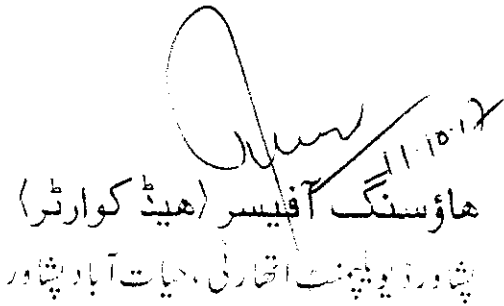 11.10.17
ھاؤسنگ آفیسر (ھیڈ کوارٹر)
پشاور ڈیویلپمنٹ اتھارٹی، حیات آباد پشاور